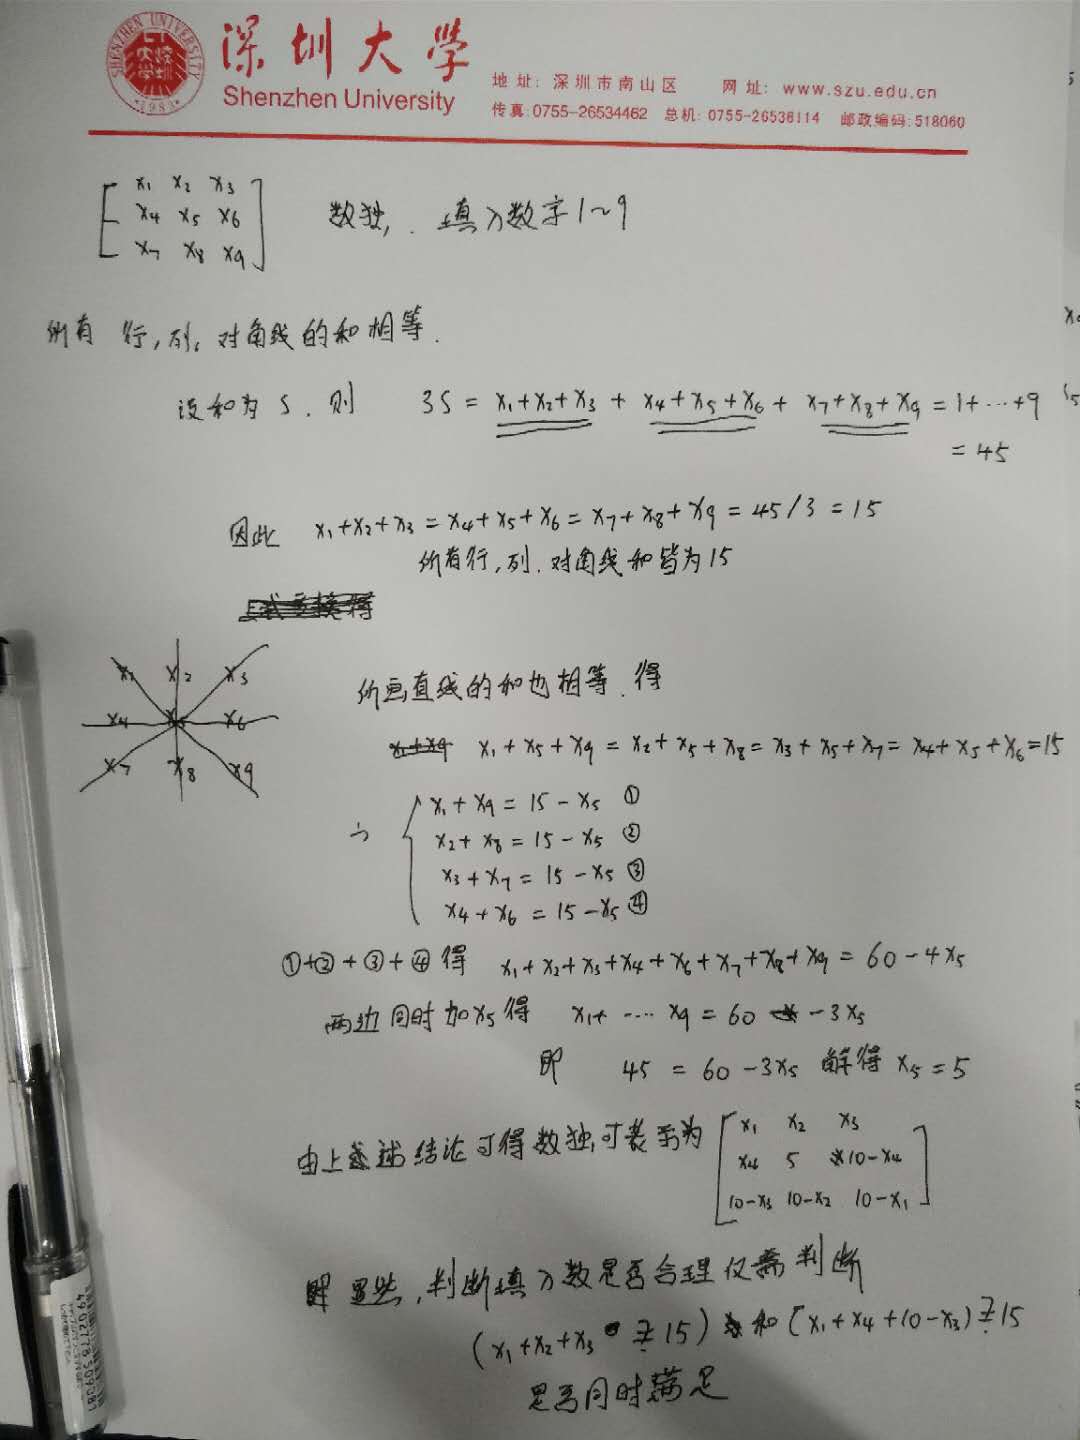 深圳大学
Shenzhen University
地址: 深圳市南山区 网址: www.szu.edu.cn
传真:0755-26534462 总机: 0755-26536114 邮政编码:518060
x₁ x₂ x₃
x₄ x₅ x₆
x₇ x₈ x₉
数独, 填入数字1~9
所有 行,列,对角线的和相等.
设和为S.则 3S = x₁+x₂+x₃ + x₄+x₅+x₆ + x₇+x₈+x₉ = 1+…+9
= 45
因此 x₁+x₂+x₃ = x₄+x₅+x₆ = x₇+x₈+x₉ = 45/3 = 15
所有行,列.对角线和皆为15
x₁ x₂ x₃
x₄ x₅ x₆
x₇ x₈ x₉
所画直线的和也相等.得
x₁+x₅+x₉ = x₂+x₅+x₈ = x₃+x₅+x₇ = x₄+x₅+x₆ = 15
x₁+x₉ = 15-x₅ ①
x₂+x₈ = 15-x₅ ②
x₃+x₇ = 15-x₅ ③
x₄+x₆ = 15-x₅ ④
①+②+③+④ 得 x₁+x₂+x₃+x₄+x₆+x₇+x₈+x₉ = 60-4x₅
两边同时加x₅得 x₁+ ···· x₉ = 60 -3x₅
即 45 = 60-3x₅ 解得 x₅ = 5
由上述结论可得数独可表示为
x₁ x₂ x₃
x₄ 5 10-x₄
10-x₃ 10-x₂ 10-x₁
显然,判断填入数是否合理仅需判断
(x₁+x₂+x₃ ≟ 15) 和 (x₁+x₄+10-x₃) ≟ 15
是否同时满足